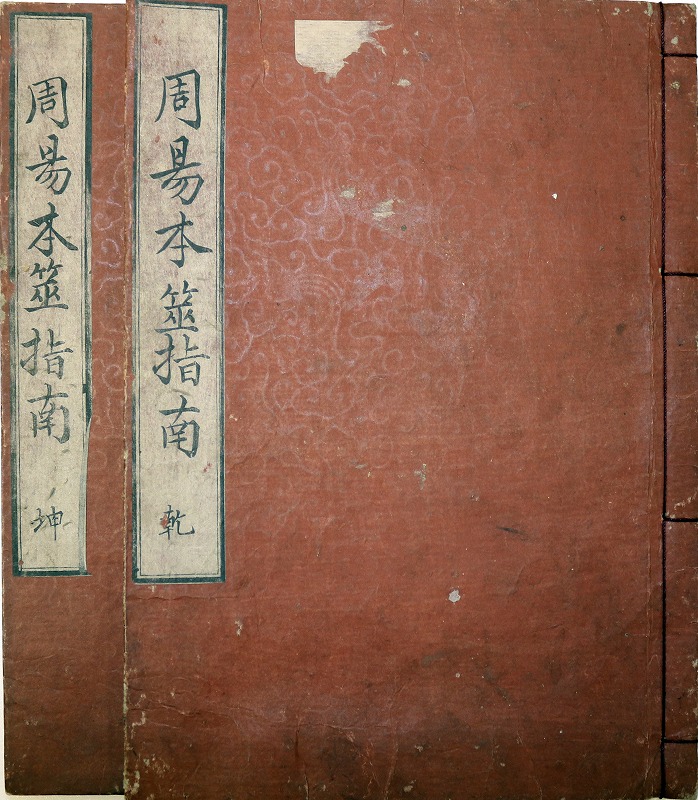 周易本筮指南 乾
周易本筮指南 坤